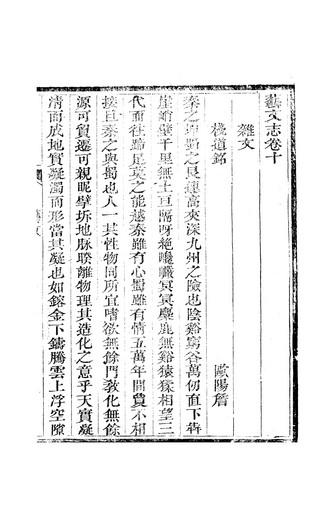 藝文志卷十
雜文
棧道銘 歐陽詹
秦之坤蜀之艮連高夾深九州之險也陰谿窮谷萬仞直下犇
崖峭壁千里無土亘隔呀絶巉巖冥冥麋鹿無谿猿猱相望三
代而往蹄足莫之能越秦雖有心蜀雖有情五萬年間夐不相
接且秦之與蜀也人一其性物同所宜嗜欲無餘門敎化無餘
源可貿遷可親昵擘坼地脉睽離物理其造化之意乎天實凝
清而成地實凝濁而形當其凝也如鎔金下鑄騰雲上浮空隙